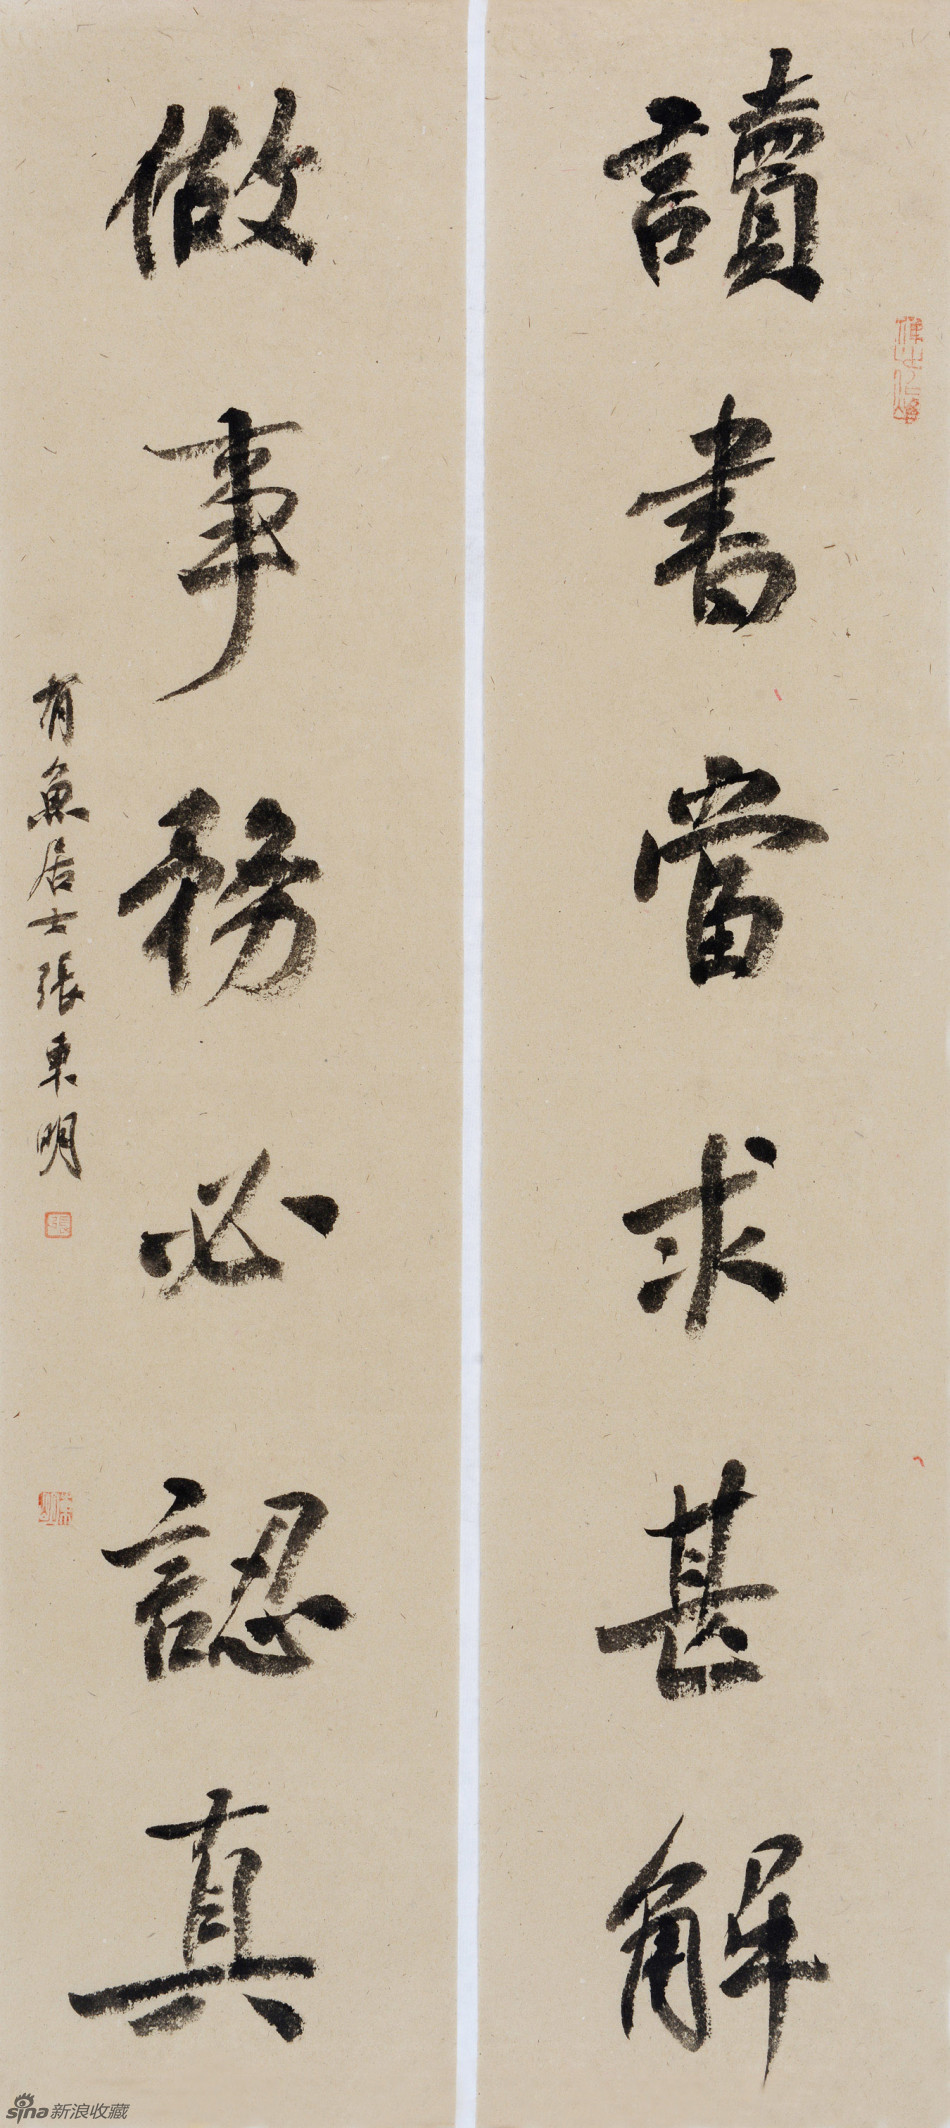 讀書當求甚解
做事務必認真
有魚居士張東明
sina新浪收藏